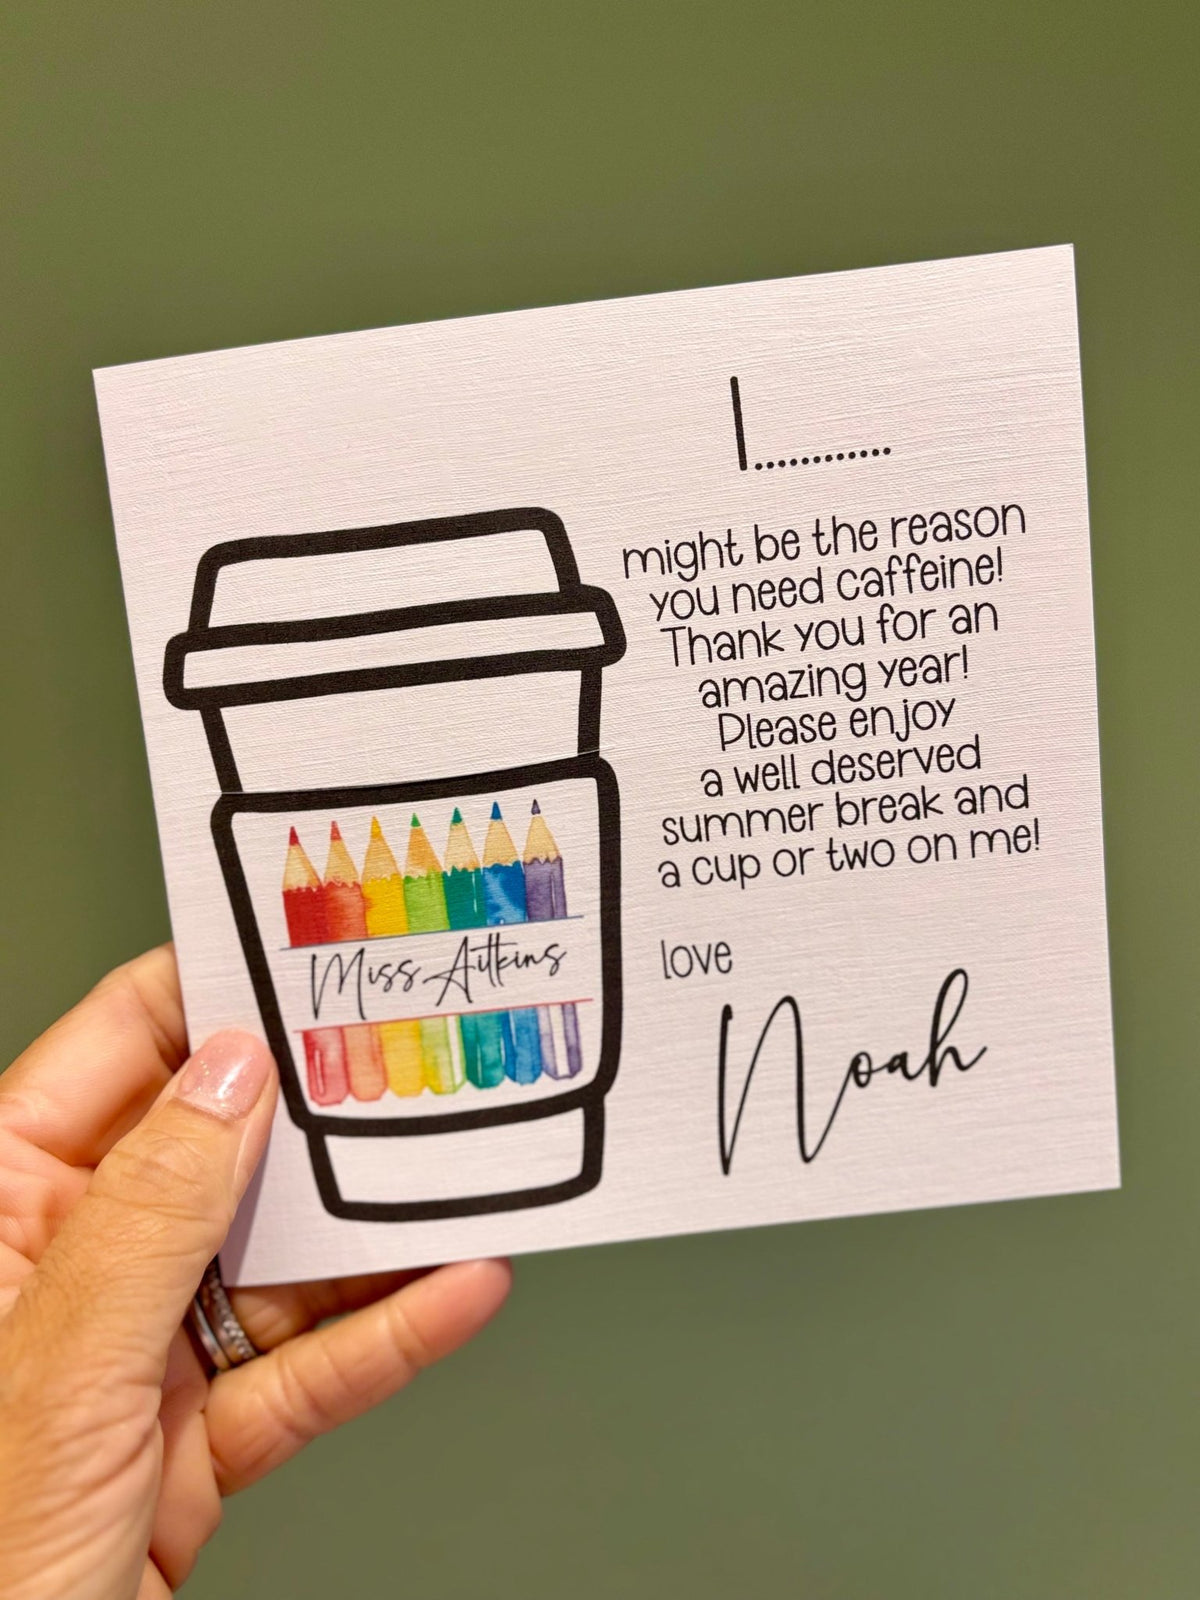 I............
might be the reason
you need caffeine!
Thank you for an
amazing year!
Please enjoy
a well deserved
summer break and
a cup or two on me!
love
Noah
Miss Aitkins